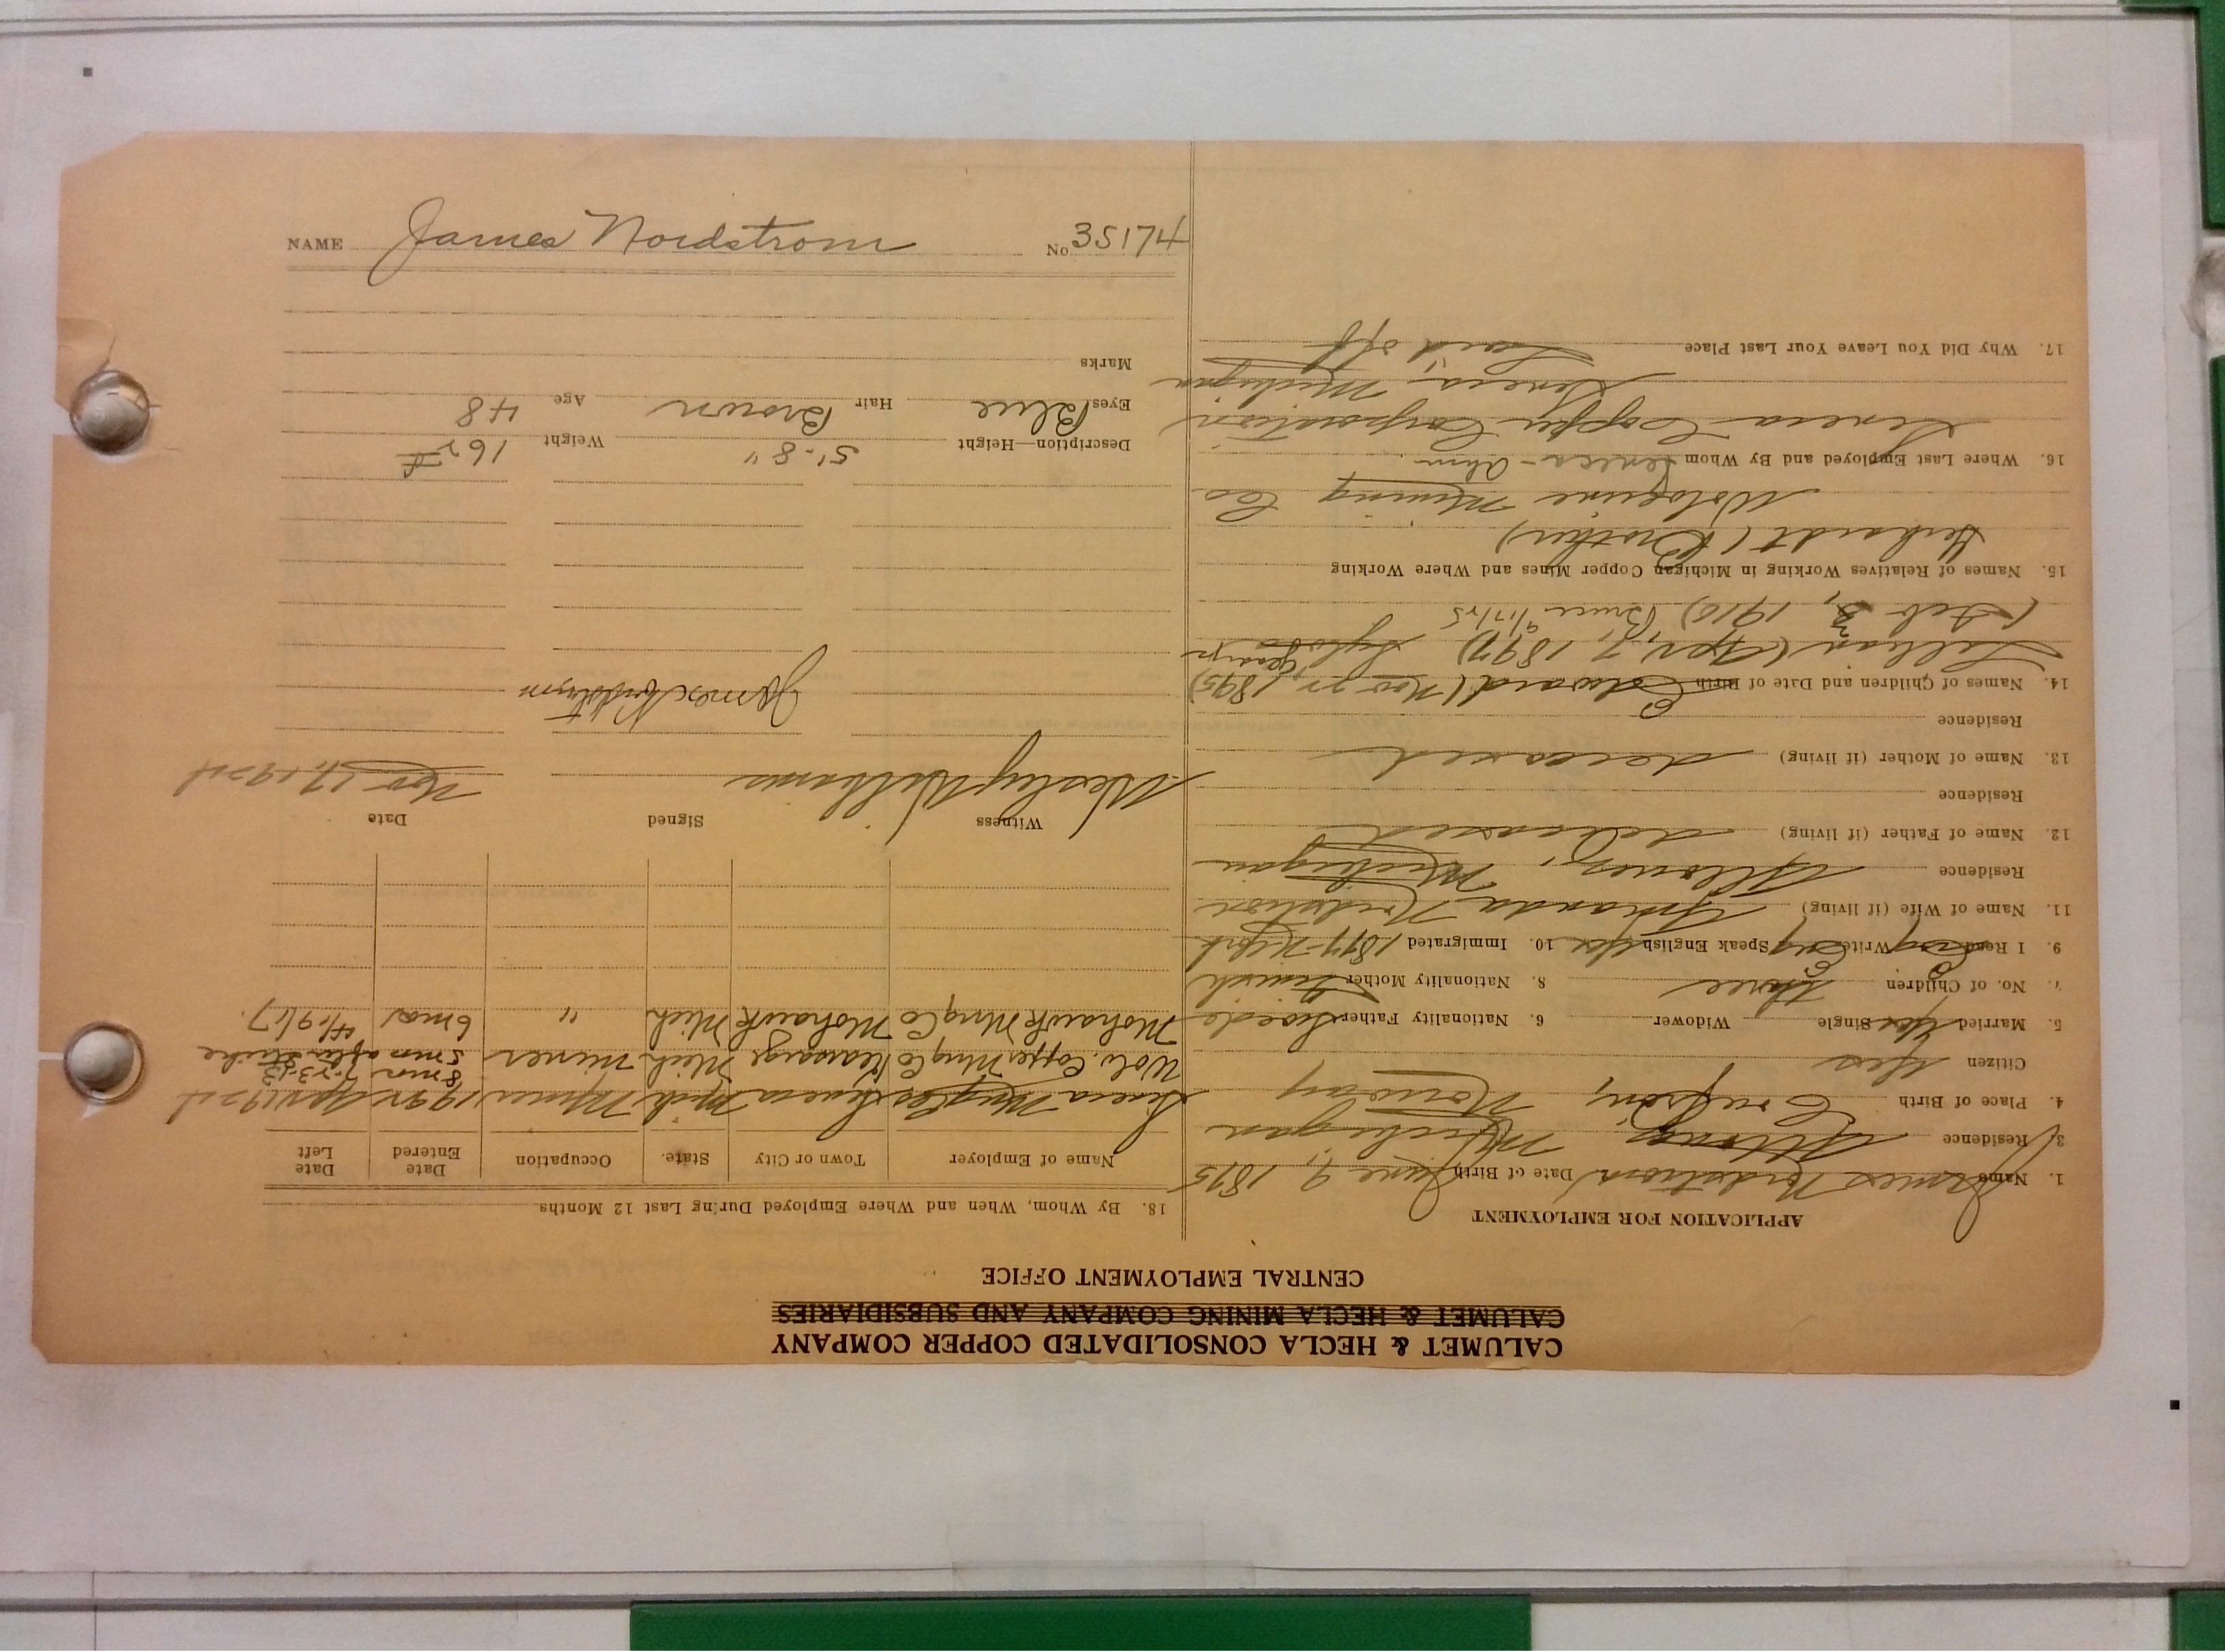 CALUMET & HECLA CONSOLIDATED COPPER COMPANY
CALUMET & HECLA MINING COMPANY AND SUBSIDIARIES
CENTRAL EMPLOYMENT OFFICE
APPLICATION FOR EMPLOYMENT
1. Name James Nordstrom Date of Birth June 9, 1875
3. Residence Michigan
4. Place of Birth Norway
Citizen Yes
5. Married Yes Single Widower 6. Nationality Father Swede
7. No. of Children Three 8. Nationality Mother Finnish
9. I Read Eng Write Eng Speak English Yes 10. Immigrated
11. Name of Wife (if living) Amanda Nordstrom
Residence Michigan
12. Name of Father (if living) deceased
Residence
13. Name of Mother (if living) deceased
Residence
14. Names of Children and Date of Birth Edward (Nov 1895)
Lillian (Apr. 7, 1897) George
(Feb 3, 1910) Bruce 9/17/15
15. Names of Relatives Working in Michigan Copper Mines and Where Working
Gerhardt (Brother)
Wolverine Mining Co
16. Where Last Employed and By Whom Seneca -
Seneca Copper Corporation
Seneca Michigan
17. Why Did You Leave Your Last Place Laid off
18. By Whom, When and Where Employed During Last 12 Months
Name of Employer Town or City State. Occupation Date Entered Date Left
Seneca Mng Co Seneca Mich Miner
Wolv. Copper Mng Co Kearsarge Mich Miner 8 mos 7-23-13
5 mos after strike
Mohawk Mng Co Mohawk Mich " 6 mos 4/19/17.
Witness Signed Date
Wesley Williams Nov 17, 1924
James Nordstrom
Description—Height 5'-8" Weight 162#
Eyes Blue Hair Brown Age 48
Marks
NAME James Nordstrom No. 35174